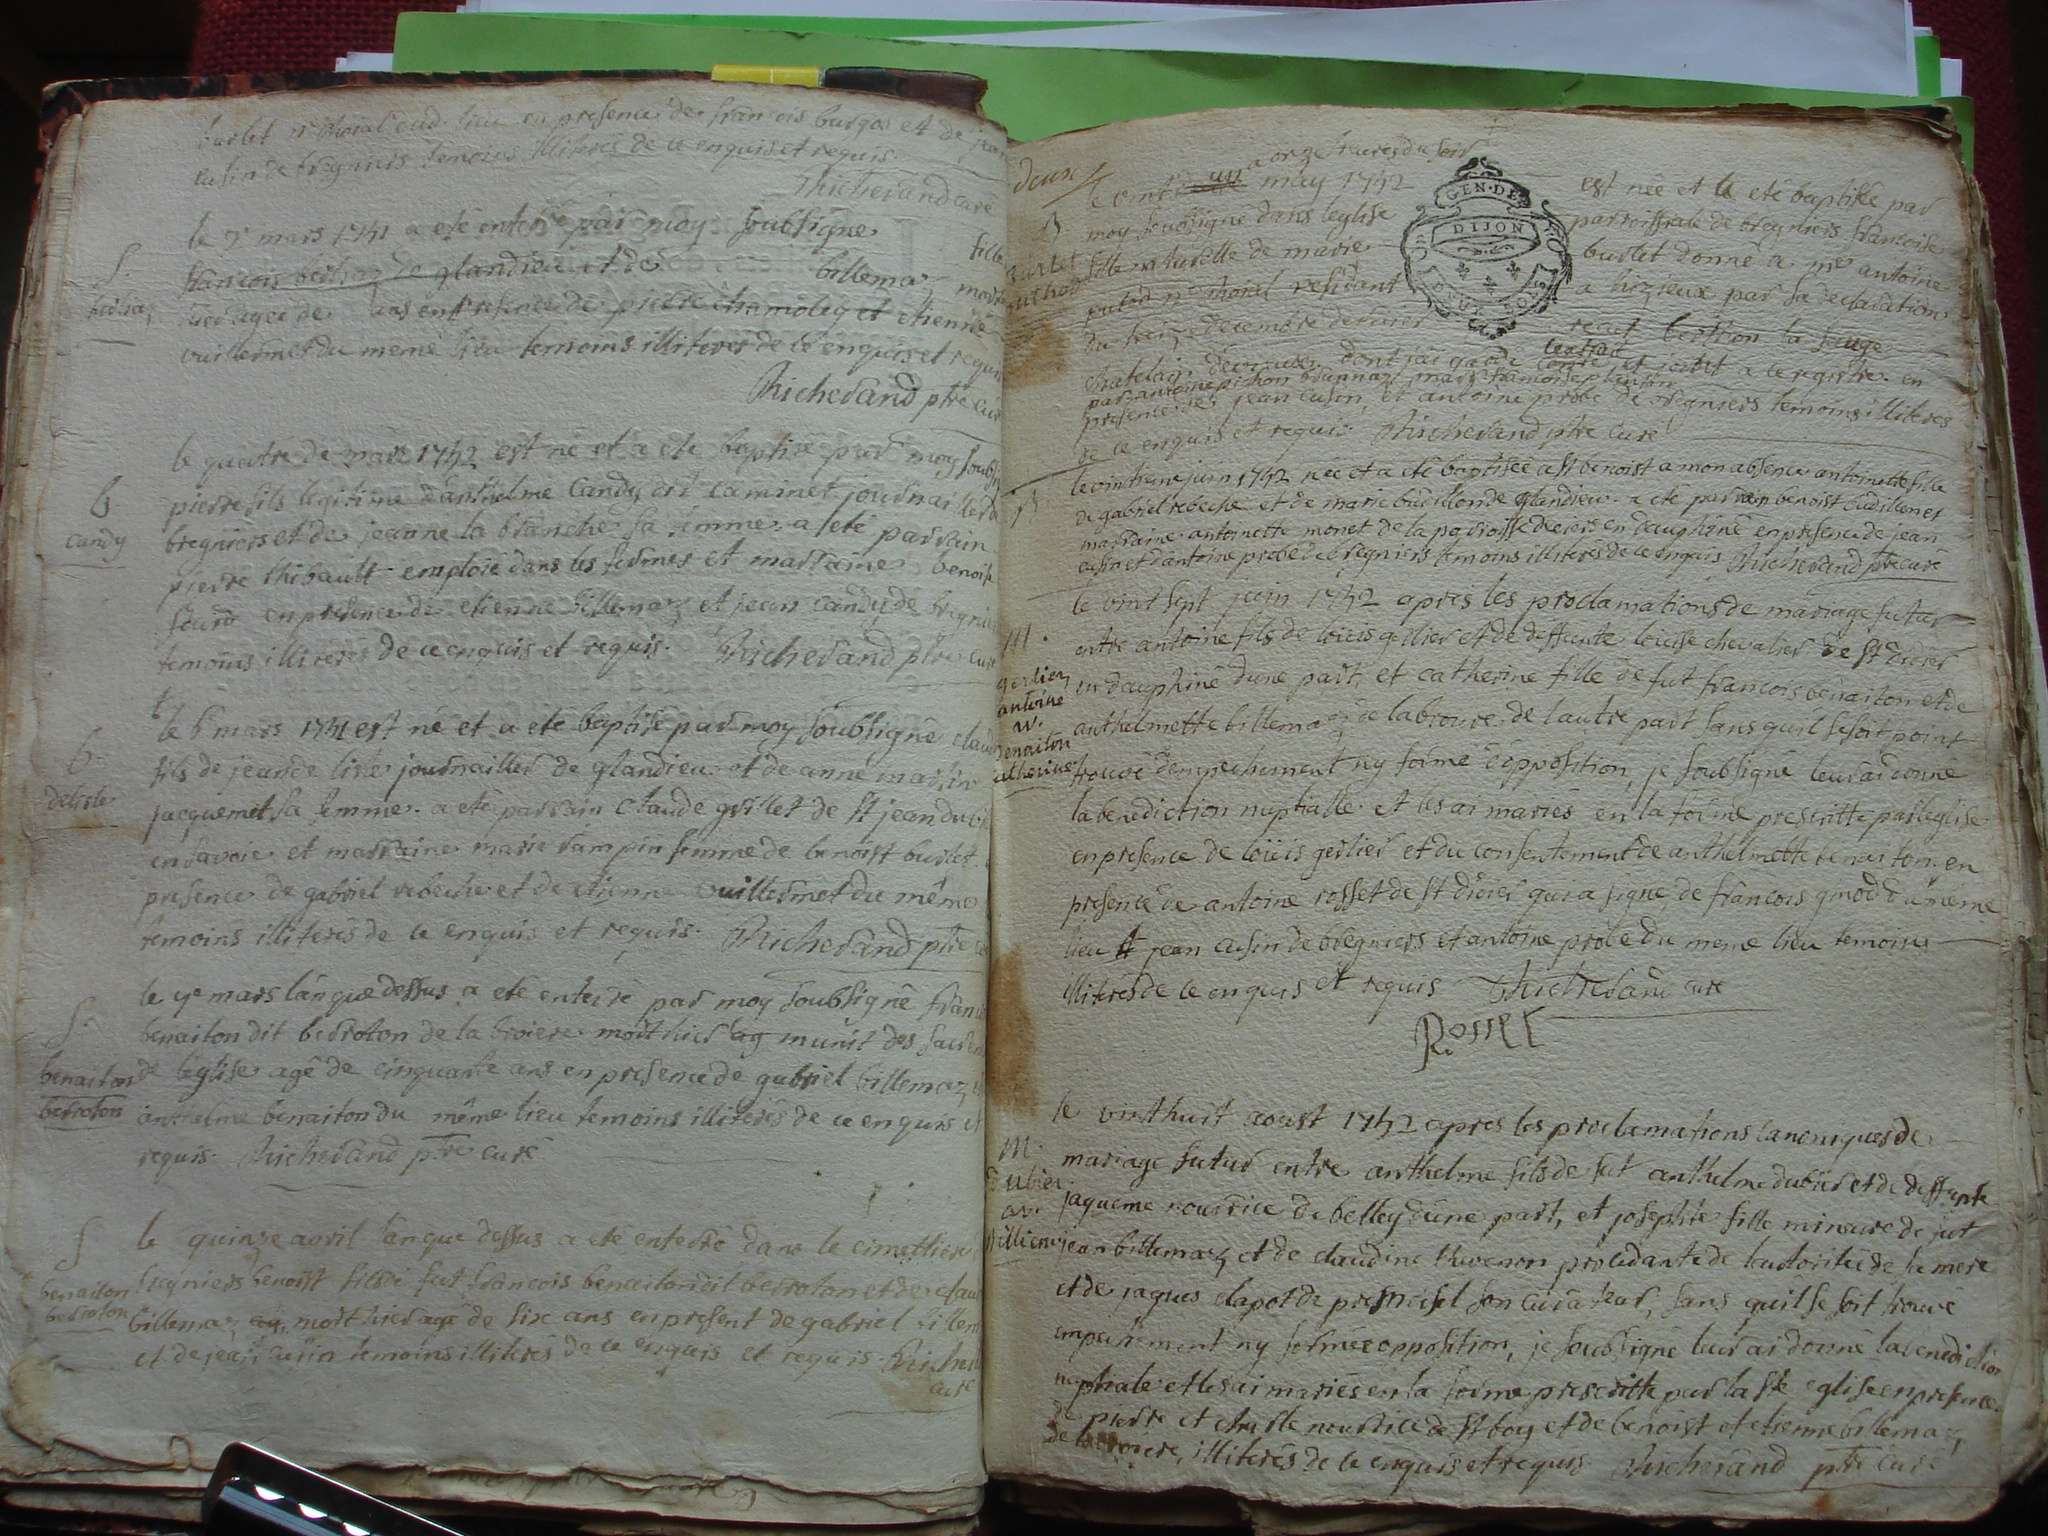 burlet nre Royal aud. lieu en presence de francois burgos et de jean
cusin de bregniers temoins illiteres de ce enquis et requis.
Richerand curé
le mars 1741 a eté enterré par moy soubsigné
francois de glandieu et de billemaz
S.
agée de ans en presence de pierre et etienne
vuillermet du meme lieu temoins illiteres de ce enquis et requis
Richerand ptre curé
le quatre de mars 1742 est né et a eté baptisé par moy soubsigné
B.
candy
pierre fils legitime d'anthelme Candy dit caminet journaillier de
bregniers et de jeanne la branche sa femme a eté parrain
pierre thibault emploié dans les fermes et marraine benoite
en presence de etienne billemaz et jean candy de bregniers
temoins illiteres de ce enquis et requis. Richerand ptre curé
le mars 1741 est né et a eté baptisé par moy soubsigné claude
B.
delisle
fils de jean de lisle journaillier de glandieu et de anne martin
jacquemet sa femme. a eté parrain Claude grillet de St jean du
en savoie et marraine marie rampin femme de benoist burlet.
presence de gabriel rebeche et de etienne vuillermet du même
temoins illiterés de ce enquis et requis. Richerand ptre curé
le 9e mars l'an que dessus a eté enterré par moy soubsigné francois
S.
benaiton dit bedroton de la broiere mort hier ag munit des sacremens
benaiton
bedroton
de l'eglise agé de cinquante ans en presence de gabriel billemaz et
anthelme benaiton du même lieu temoins illiterés de ce enquis et
requis. Richerand ptre curé
le quinze avril l'an que dessus a eté enterré dans le cimettiere
S
benaiton
bedroton
bregniers benoist fils de fut francois benaiton dit bedroton et de claudine
billemaz, ag, mort hier agé de six ans en present de gabriel billemaz
et de jean cusin temoins illiterés de ce enquis et requis. Richerand
curé
deux
a onze heures du soir
le vint d un may 1742 est née et a eté baptisée par
B
moy soubsigné dans leglise parroissiale de bregniers francoise
burlet
fille naturelle de marie burlet donné a mre antoine
nre Royal residant a hizieux par sa declaration
du treize decembre dernier recut la
GEN. DE
DIJON
DEUX SOLS
chatelain de dont jai gardé l'extrait et joint a ce registre. en
par antoine pichon marr. francoise
presence de jean cusin et antoine probe de bregniers temoins illiteres
de ce enquis et requis. Richerand ptre curé
B
le vint un juin 1742 née et a eté baptisée a St benoist a mon absence antoinette fille
de gabriel rebeche et de marie budillon de glandieu. a eté parrain benoist budillon et
marraine antoinette monet de la parroisse de en dauphiné en presence de jean
cusin et d'antoine probe de bregniers temoins illiterés de ce enquis Richerand ptre curé
le vint sept juin 1742 apres les proclamations de mariage futur
M.
entre antoine fils de loüis gerlier et de deffunte loüise chevalier de St didier
gerlier
antoine
av.
benaiton
catherine
en dauphiné dune part, et catherine fille de fut francois benaiton et de
anthelmette billemaz de labroiere de lautre part sans quil se soit point
trouvé dempechement ny formé d'opposition, je soubsigné leur ai donné
la benediction nuptialle et les ai mariés en la forme prescritte par leglise
en presence de loüis gerlier et du consentement de anthelmette benaiton. en
presence de antoine rosset de St didier qui a signé, de francois gmod du meme
lieu et jean cusin de bregniers et antoine probe du meme lieu temoins
illiterés de ce enquis et requis Richerand curé
Rosset
le vint huit aoust 1742 apres les proclamations canoniques de
M.
dubier
av.
billiemaz
mariage futur entre anthelme fils de fut anthelme dubier et de deffunte
jaqueme nourrice de belley dune part, et josephte fille mineure de fut
jean billemaz et de claudine thevenon procedante de lautorité de sa mere
et de jaques clapot de premeisel son curateur, sans quil se soit trouvé
empeirement ny formée opposition, je soubsigné leur ai donné la benediction
nuptiale et les ai mariés en la forme prescritte par la ste eglise en presence
de pierre et nourrice de St boy et de benoist et etienne billemaz
de labroiere, illiterés de ce enquis et requis Richerand ptre curé